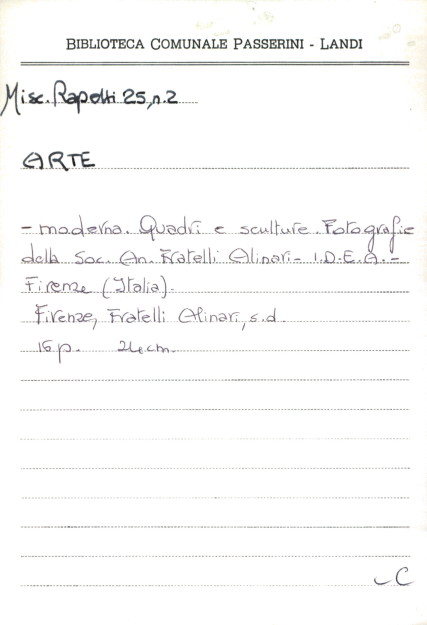 BIBLIOTECA COMUNALE PASSERINI - LANDI
Misc. Rapetti 25, n.2
ARTE
- moderna. Quadri e sculture. Fotografie
della Soc. An. Fratelli Alinari - I.D.E.A. -
Firenze (Italia).
Firenze, Fratelli Alinari, s.d.
16 p. 24 cm.
C